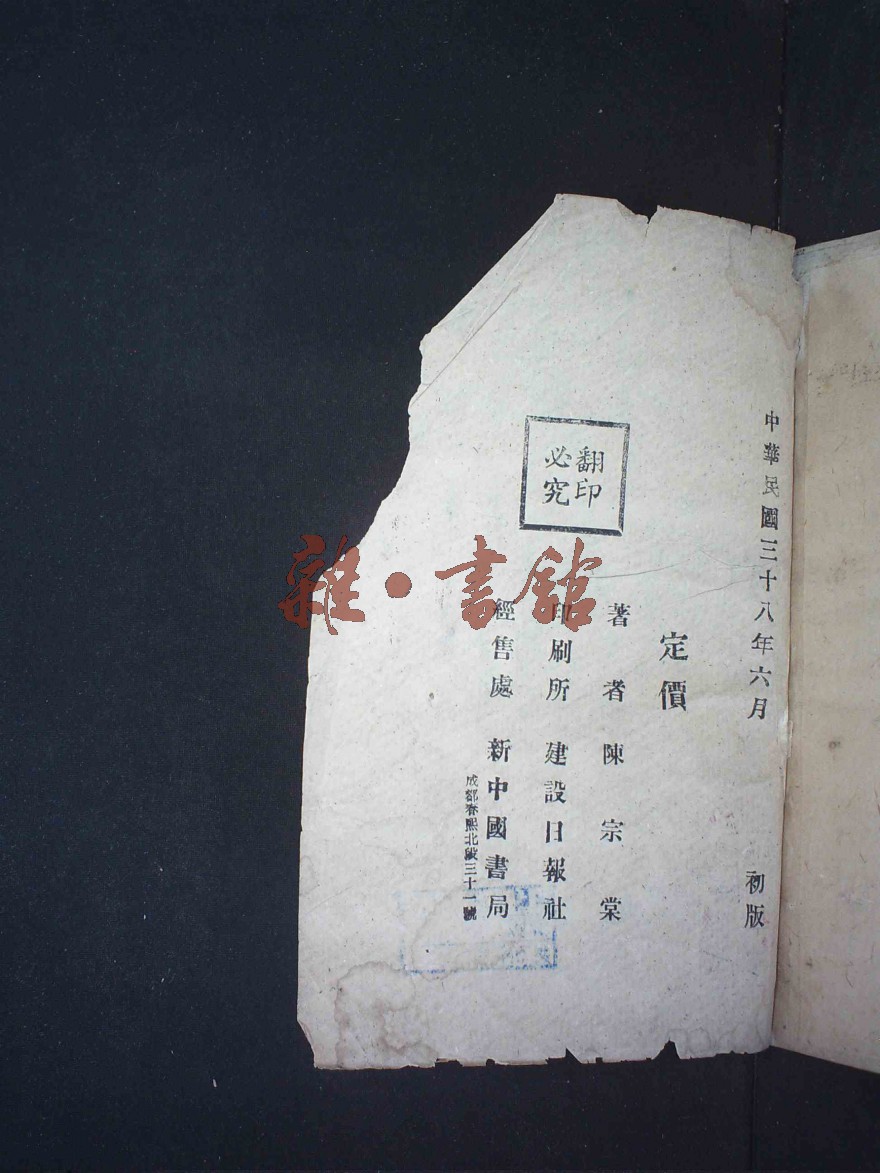 中華民國三十八年六月 初版
定價
著者 陳宗棠
印刷所 建設日報社
經售處 新中國書局
成都春熙北段三十一號
翻印
必究
雜·書館